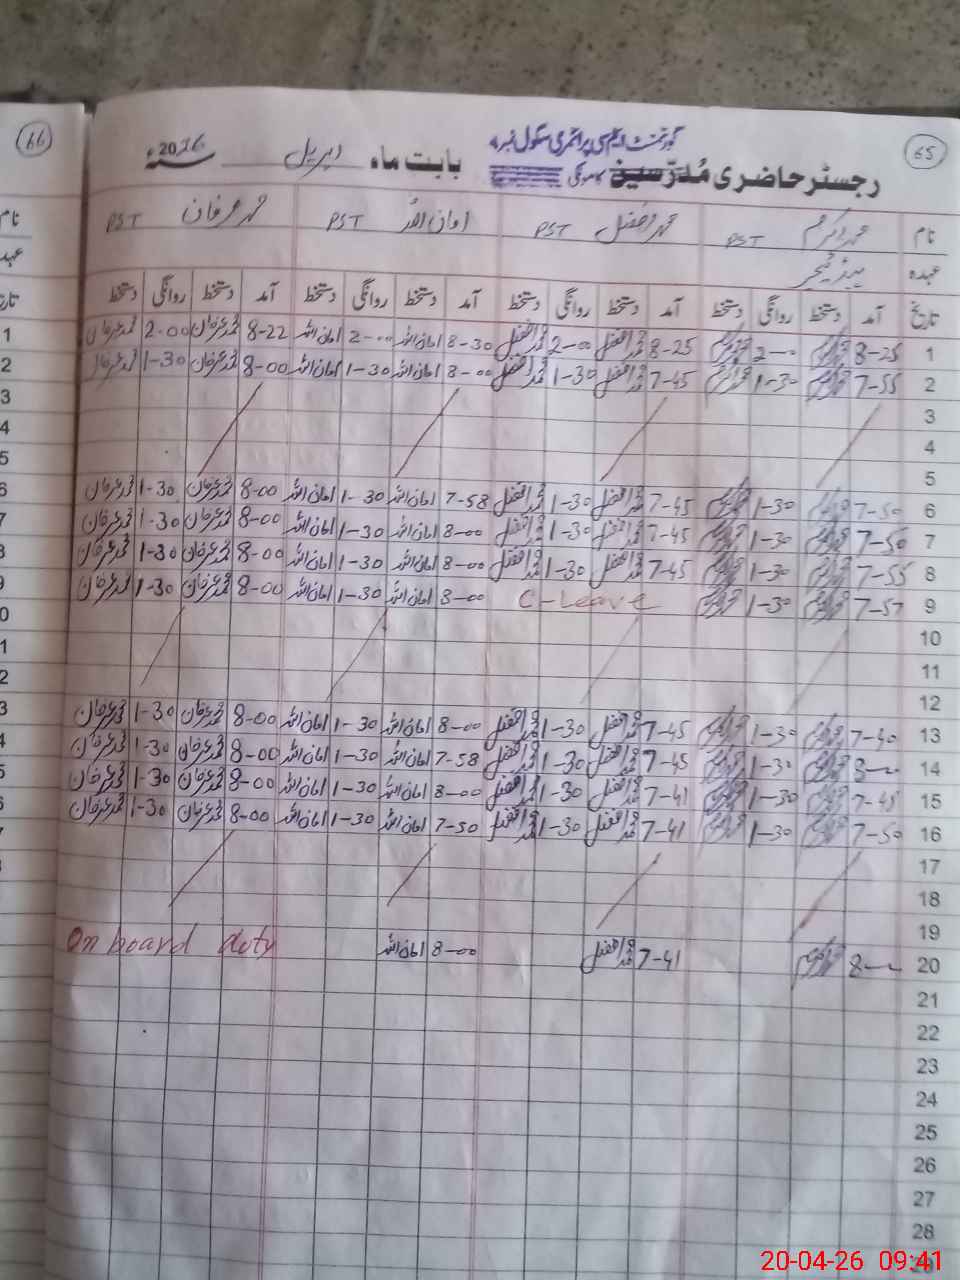 66
65
گورنمنٹ ایم سی پرائمری سکول نمبر ۹
رجسٹر حاضری مُدرّسین کامونکی بابت ماہ اپریل 2026ء
نام محمد اکرم PST محمد افضل PST امان اللہ PST محمد عرفان PST
عہدہ ہیڈ ٹیچر
تاریخ آمد دستخط روانگی دستخط آمد دستخط روانگی دستخط آمد دستخط روانگی دستخط آمد دستخط روانگی دستخط
1 8-25 2-00 8-25 محمد افضل 2-00 محمد افضل 8-30 امان اللہ 2-00 امان اللہ 8-22 محمد عرفان 2-00 محمد عرفان
2 7-55 1-30 7-45 محمد افضل 1-30 محمد افضل 8-00 امان اللہ 1-30 امان اللہ 8-00 محمد عرفان 1-30 محمد عرفان
3
4
5
6 7-50 1-30 7-45 محمد افضل 1-30 محمد افضل 7-58 امان اللہ 1-30 امان اللہ 8-00 محمد عرفان 1-30 محمد عرفان
7 7-50 1-30 7-45 محمد افضل 1-30 محمد افضل 8-00 امان اللہ 1-30 امان اللہ 8-00 محمد عرفان 1-30 محمد عرفان
8 7-55 1-30 7-45 محمد افضل 1-30 محمد افضل 8-00 امان اللہ 1-30 امان اللہ 8-00 محمد عرفان 1-30 محمد عرفان
9 7-57 1-30 C-Leave 8-00 امان اللہ 1-30 امان اللہ 8-00 محمد عرفان 1-30 محمد عرفان
10
11
12
13 7-40 1-30 7-45 محمد افضل 1-30 محمد افضل 8-00 امان اللہ 1-30 امان اللہ 8-00 محمد عرفان 1-30 محمد عرفان
14 8-00 1-30 7-45 محمد افضل 1-30 محمد افضل 7-58 امان اللہ 1-30 امان اللہ 8-00 محمد عرفان 1-30 محمد عرفان
15 7-45 1-30 7-41 محمد افضل 1-30 محمد افضل 8-00 امان اللہ 1-30 امان اللہ 8-00 محمد عرفان 1-30 محمد عرفان
16 7-50 1-30 7-41 محمد افضل 1-30 محمد افضل 7-50 امان اللہ 1-30 امان اللہ 8-00 محمد عرفان 1-30 محمد عرفان
17
18
19
20 8-00 7-41 محمد افضل 8-00 امان اللہ On board duty
21
22
23
24
25
26
27
28
20-04-26 09:41